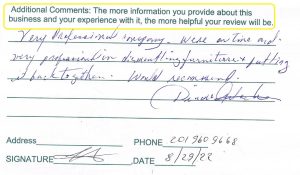 Additional Comments: The more information you provide about this
business and your experience with it, the more helpful your review will be.
Very Professional company. Were on time and
very professional in dismantling furniture & putting
it back together. Would recommend.
Address PHONE 201 960 9668
SIGNATURE DATE 8/29/22